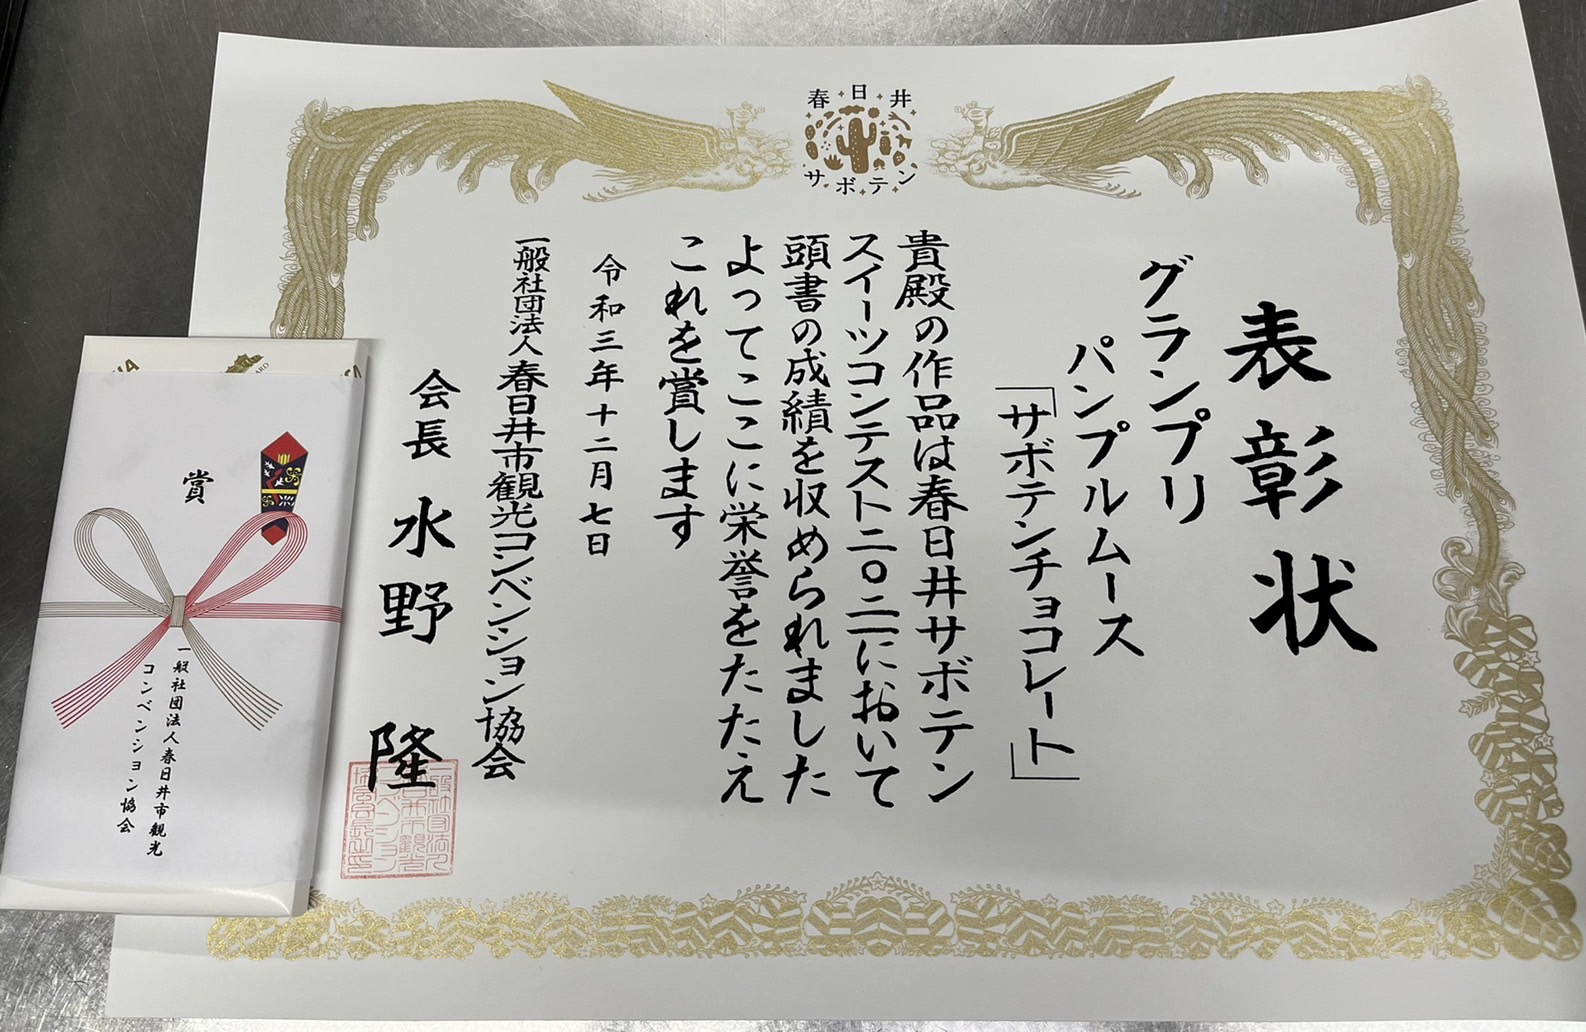 春日井
サボテン
表彰状
グランプリ
パンプルムース
「サボテンチョコレート」
貴殿の作品は春日井サボテン
スイーツコンテスト二〇二一において
頭書の成績を収められました
よってここに栄誉をたたえ
これを賞します
令和三年十二月七日
一般社団法人春日井市観光コンベンション協会
会長 水野 隆
賞
一般社団法人春日井市観光
コンベンション協会